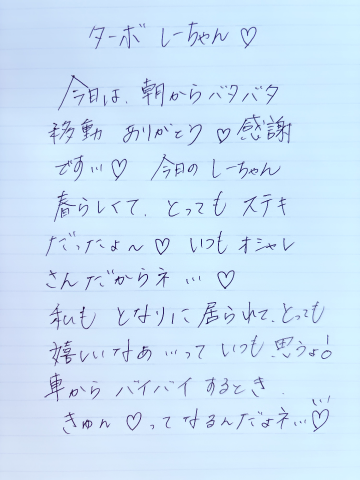 ターボ しーちゃん♡
今日は、朝からバタバタ
移動 ありがとう♡感謝
です…♡ 今日の しーちゃん
春らしくて、とっても ステキ
だったよ〜♡ いつも オシャレ
さんだからネ…♡
私も となりに 居られて、とっても
嬉しいなぁ…って いつも 思うよ!
車から バイバイ するとき、
きゅん♡って なるんだよネ…♡